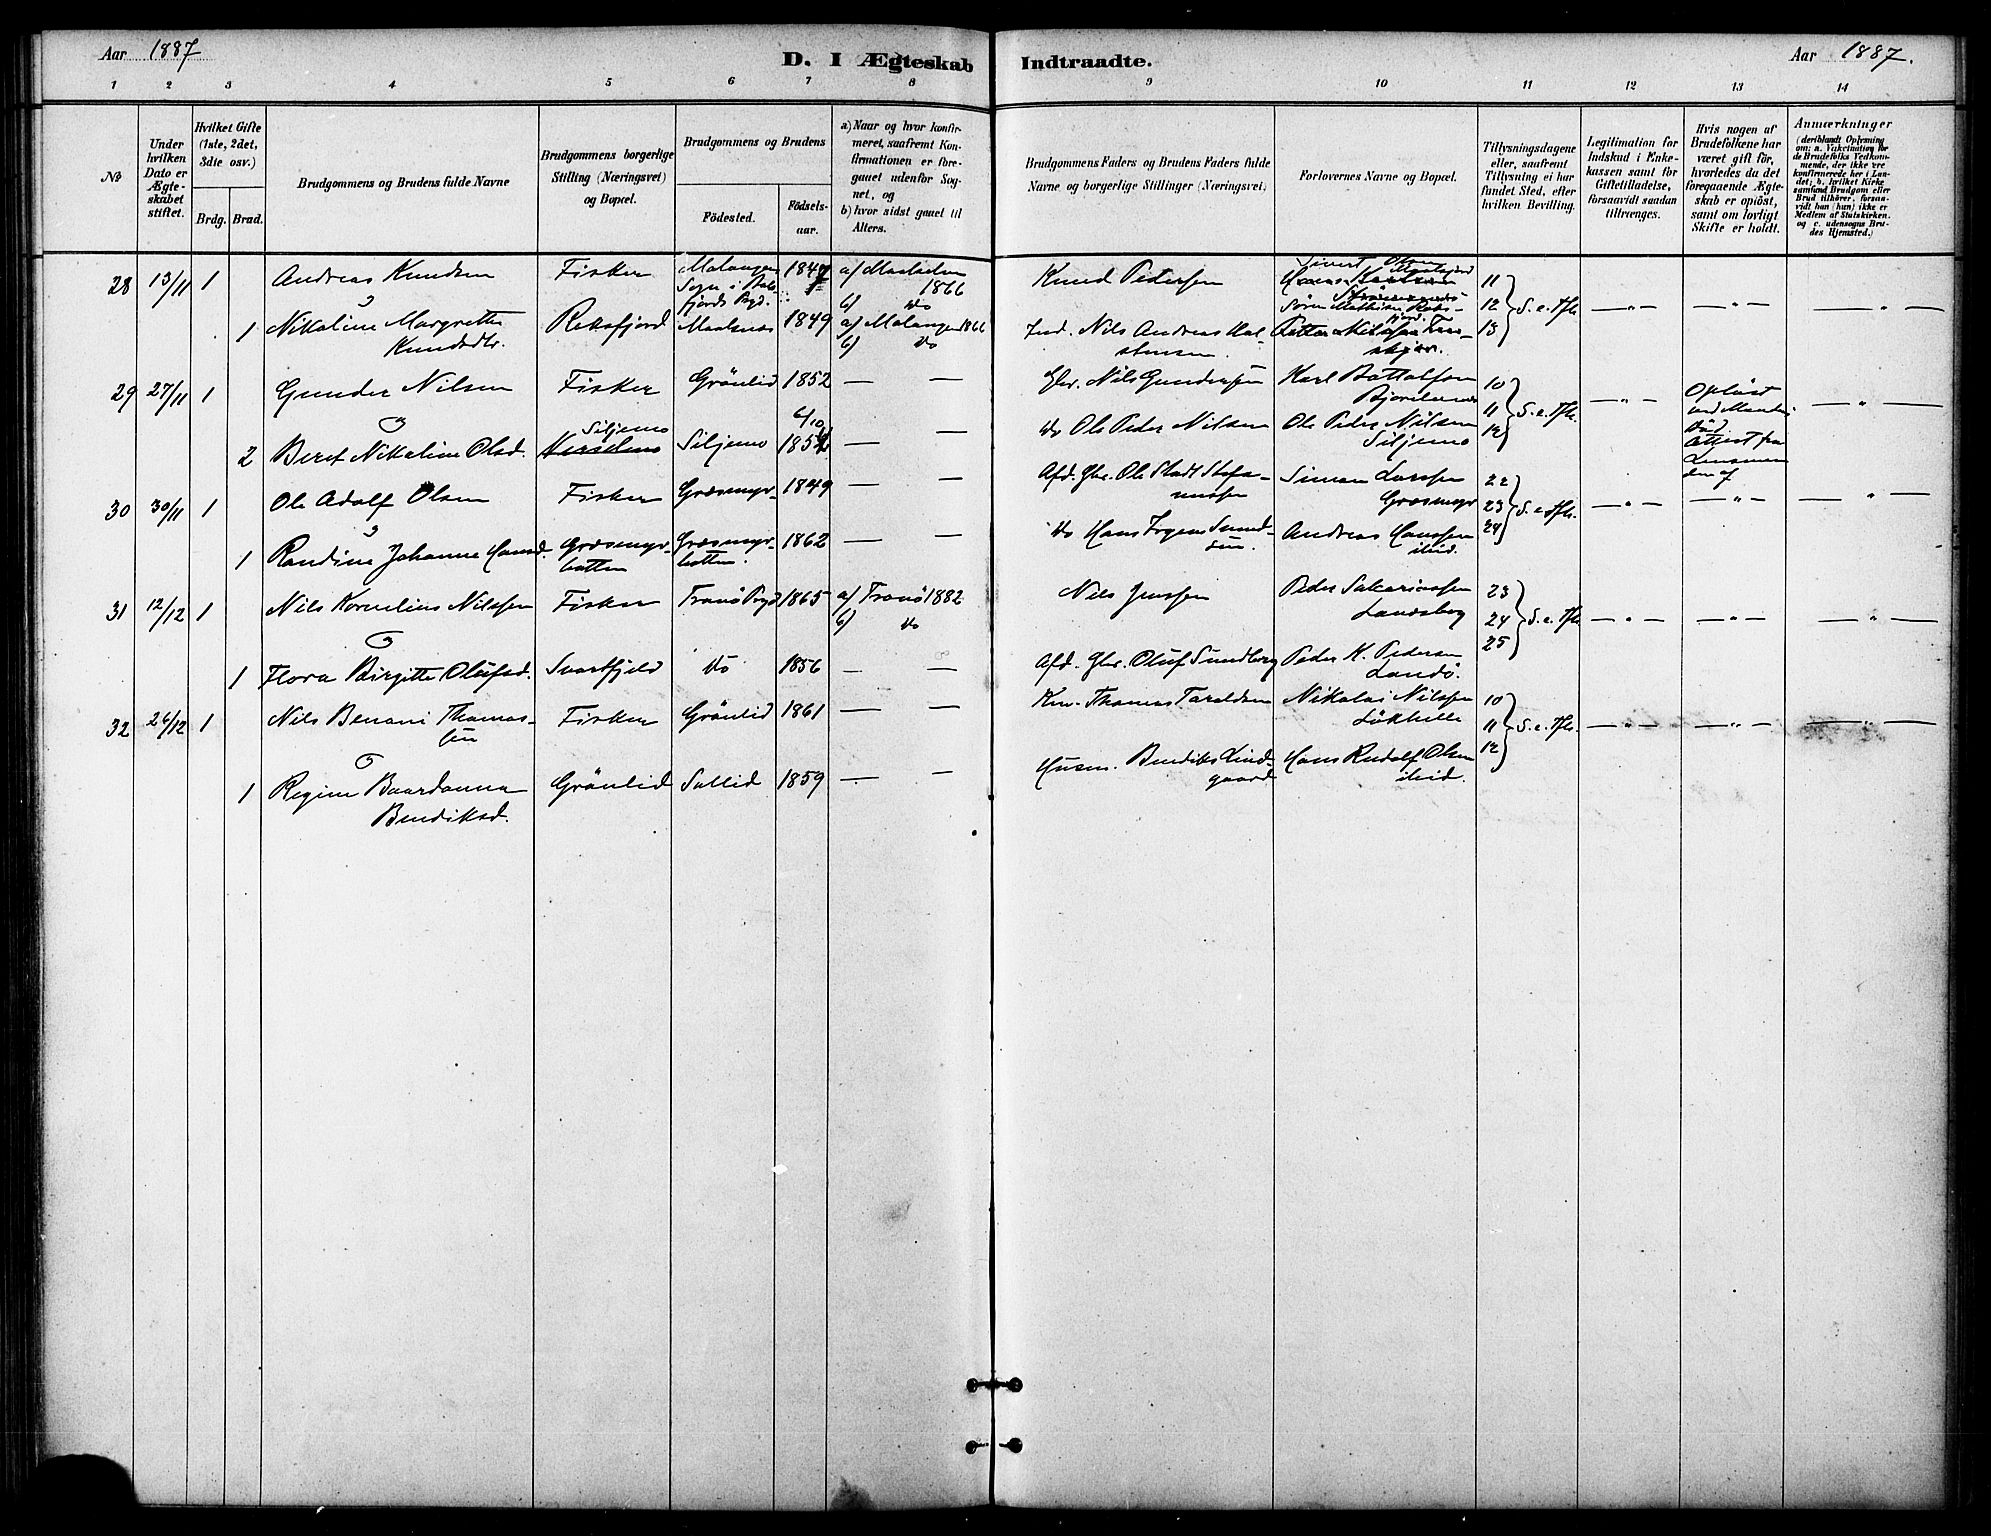 Aar 1887
D. I Ægteskab Indtraadte.
Aar 1887.
1 2 3 4 5 6 7 8 9 10 11 12 13 14
No
Under hvilken Dato er Ægteskabet stiftet.
Hvilket Gifte (1ste, 2det, 3die osv.)
Brdg. Brud.
Brudgommens og Brudens fulde Navne
Brudgommens borgerlige Stilling (Næringsvei) og Bopæl.
Brudgommens og Brudens
Födested.
Födsels-aar.
a) Naar og hvor konfirmeret, saafremt Konfirmationen er foregaaet udenfor Sognet, og
b) hvor sidst gaaet til Alters.
Brudgommens Faders og Brudens Faders fulde Navne og borgerlige Stillinger (Næringsvei)
Forlovernes Navne og Bopæl.
Tillysningsdagene eller, saafremt Tillysning ei har fundet Sted, efter hvilken Bevilling.
Legitimation for Indskud i Enkekassen samt for Giftetilladelse, forsaavidt saadan tiltrænges.
Hvis nogen af Brudefolkene har været gift för, hvorledes da det foregaaende Ægteskab er oplöst, samt om lovligt Skifte er holdt.
Anmærkninger (deriblandt Oplysning om: a. Vakcination för de Brudefolks Vedkommende, der ikke ere konfirmerede her i Landet; b. hvilket Kirkesamfund Brudgom eller Brud tilhörer, forsaavidt han (hun) ikke er Medlem af Statskirken, og c. udensogns Brudes Hjemsted.)
28 13/11 1 Andreas Knudsen Fisker Malangen Sogn i Balsfjords Pgd. 1847 a/ Maalselven 1866 b/ do Knud Pedersen Sivert Olsen 11 12 13 S. e. Tfh. — " —
1 Nikoline Margrethe Knudsdtr. Roksfjord Maalsnes 1849 a/ Malangen 1866 b/ do Ind. Nils Andreas Sören Mathisen
29 27/11 1 Gunder Nilsen Fisker Grönlid 1852 — — Gbr. Nils Gundersen Karl Bottolfsen 10 11 12 S. e. Tfh. — " — Oplöst ved Mandens Död Attest fra Lensmanden af — " —
2 Beret Nikoline Olsd. Siljemo Siljemo 6/10 1854 — — do Ole Peder Nilsen Ole Peder Nilsen Siljemo
30 30/11 1 Ole Adolf Olsen Fisker Græsmyr 1849 — — Afd. Gbr. Ole Simon Larssen Græsmyr 22 23 24 S. e. Tfh. — " — — " — — " —
1 Randine Johanne Hansd. Græsmyrbotten Græsmyrbotten. 1862 — — do Hans Andreas Hanssen ibid.
31 12/12 1 Nils Kornelius Nilssen Fisker Tranö Pgd 1865 a/ Tranö 1882 b/ do Nils Jenssen Peder Sakariassen 23 24 25 S. e. Tfh. — " — — " — — " —
1 Flora Birgitte Olufsd. Svartfjeld do 1856 — — Afd. Gbr. Oluf Sundberg Peder K. Pedersen Landö.
32 26/12 1 Nils Benoni Thomassen Fisker Grönlid 1861 — — Thomas Taraldsen Nikolai Nilssen 10 11 12 S. e. Tfh. — " — — " — — " —
1 Regine Baardanna Bendiksd. Grönlid Sollid 1859 — — Husm. Bendiks Lindgaard Hans Rudolf Olsen ibid.